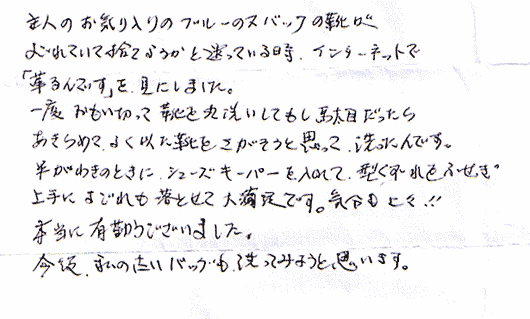 主人のお気に入りのブルーのヌバックの靴が
よごれていて捨てようかと迷っている時、インターネットで
「革るんです」を見にしました。
一度おもい切って靴を丸洗いしてもし駄目だったら
あきらめて、よく似た靴をさがそうと思って、洗ったんです。
半がわきのときに、シューズキーパーを入れて、型くずれをふせぎ
上手によごれも落とせて大満足です。気分も上々!!
本当に有難うございました。
今後、私の古いバッグも、洗ってみようと思います。